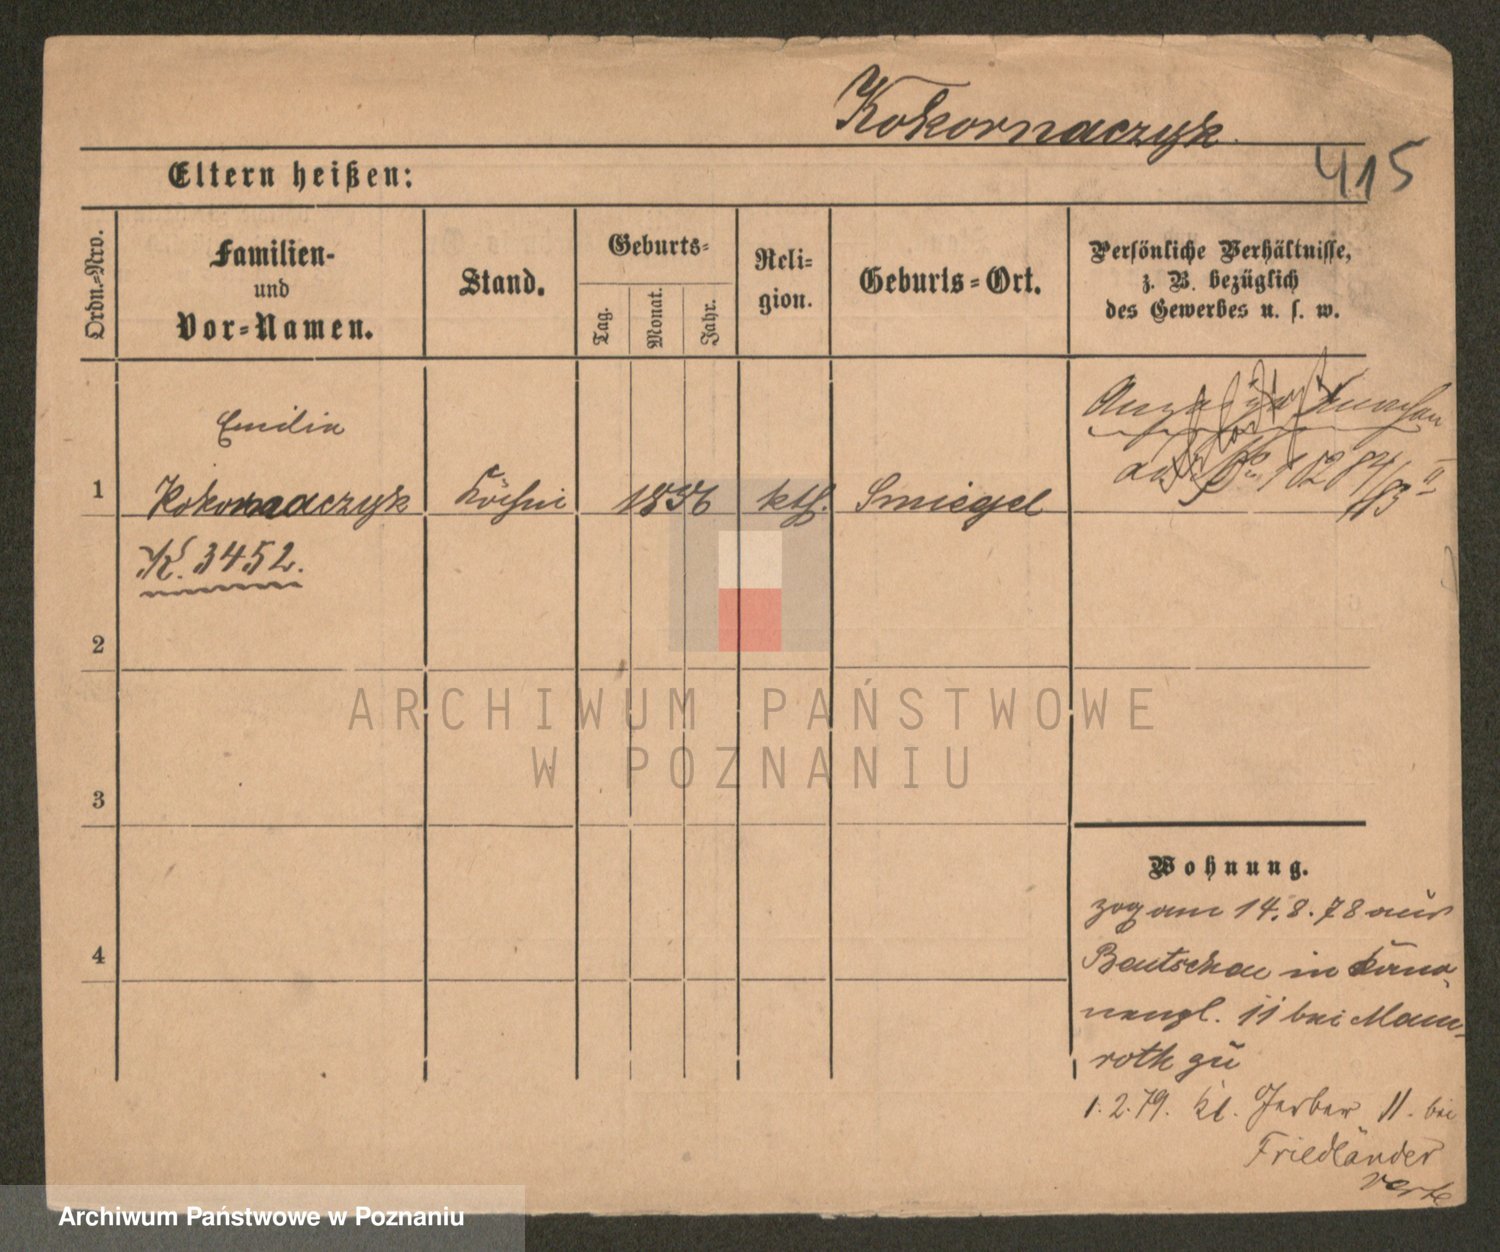 Kokornaczyk.
415
Eltern heißen:
Ordn.-Nro.
Familien-
und
Vor-Namen.
Stand.
Geburts-
Tag.
Monat.
Jahr.
Reli-
gion.
Geburts-Ort.
Persönliche Verhältnisse,
z. B. bezüglich
des Gewerbes u. s. w.
Emilia
1 Kokornaczyk Köchin 1836 kth. Smiegel
K. 3452.
2
3
4
Wohnung.
zog am 14.8.78 aus
Bentschen in Kano-
nenpl. 11 bei Mam-
roth zu
1.2.79. kl. Gerber 11. bei
Friedländer
verte
ARCHIWUM PAŃSTWOWE
W POZNANIU
Archiwum Państwowe w Poznaniu